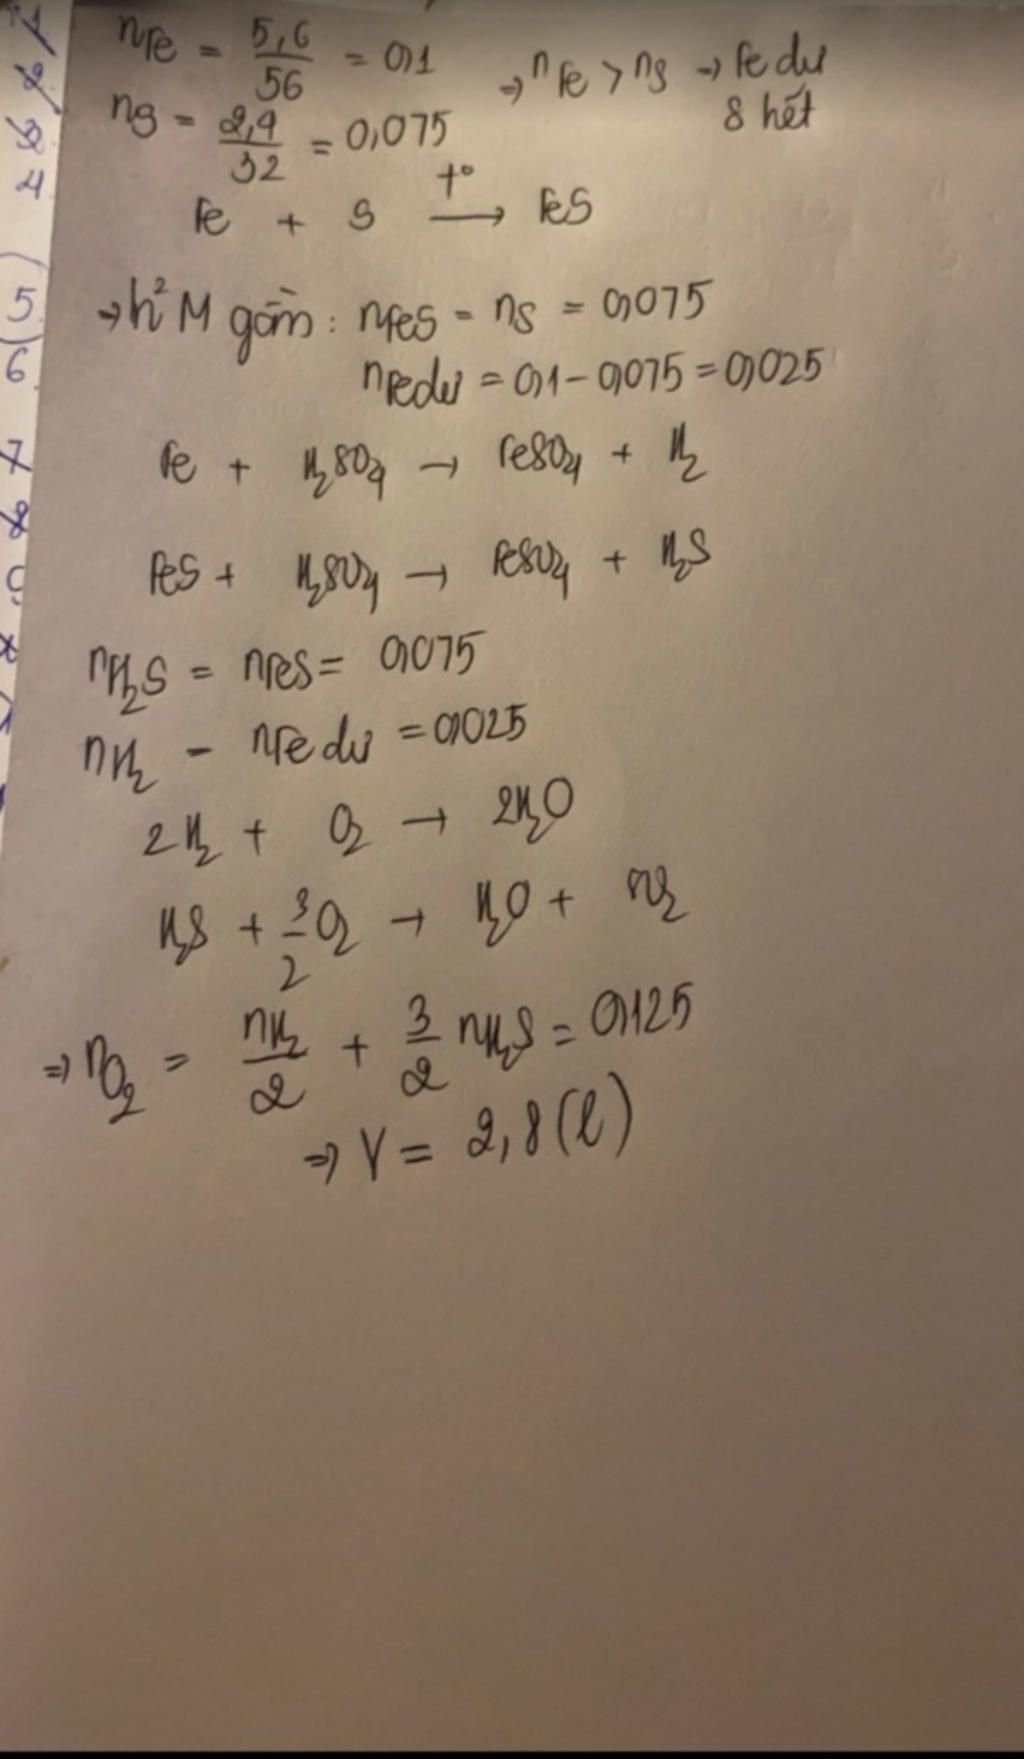 1
2
3
4
5
6
7
8
nFe = 5,6/56 = 0,1 → nFe > nS → Fe dư
S hết
nS = 2,4/32 = 0,075
Fe + S →(t°) FeS
→ h² M gồm: nFeS = nS = 0,075
nFe dư = 0,1 - 0,075 = 0,025
Fe + H₂SO₄ → FeSO₄ + H₂
FeS + H₂SO₄ → FeSO₄ + H₂S
nH₂S = nFeS = 0,075
nH₂ = nFe dư = 0,025
2H₂ + O₂ → 2H₂O
H₂S + 3/2 O₂ → H₂O +
⇒ nO₂ = nH₂/2 + 3/2 nH₂S = 0,125
⇒ V = 2,8 (l)